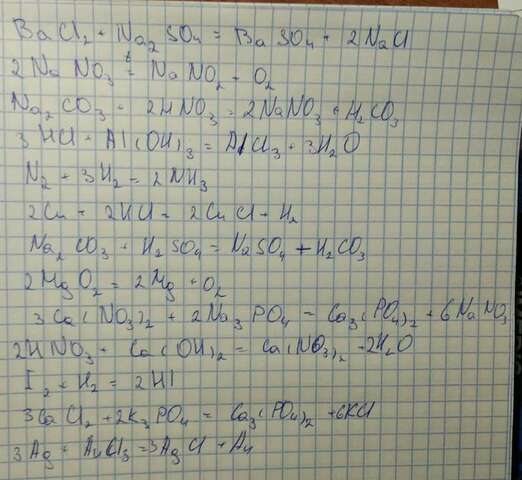 BaCl₂ + Na₂SO₄ = BaSO₄ + 2NaCl
2NaNO₃ t= NaNO₂ + O₂
Na₂CO₃ + 2HNO₃ = 2NaNO₃ + H₂CO₃
3HCl + Al(OH)₃ = AlCl₃ + 3H₂O
N₂ + 3H₂ = 2NH₃
2Cu + 2HCl = 2CuCl + H₂
Na₂CO₃ + H₂SO₄ = N2SO₄ + H₂CO₃
2MgO₂ = 2Mg + O₂
3Ca(NO₃)₂ + 2Na₃PO₄ = Ca₃(PO₄)₂ + 6NaNO₃
2HNO₃ + Ca(OH)₂ = Ca(NO₃)₂ + 2H₂O
I₂ + H₂ = 2HI
3CaCl₂ + 2K₃PO₄ = Ca₃(PO₄)₂ + 6KCl
3Ag + AuCl₃ = 3AgCl + Au